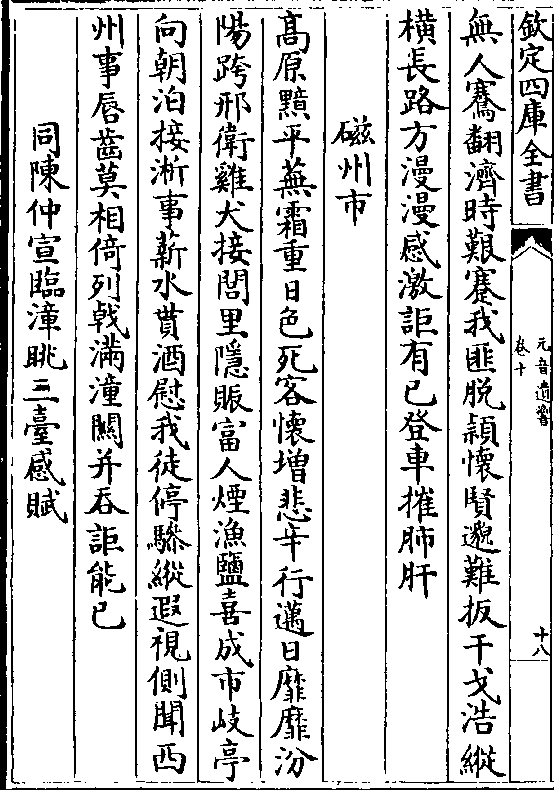 欽定四庫全書
元音遺響
卷十
十八
無人騫翻濟時艱蹇我匪脫穎懷賢邈難扳干戈浩縱
橫長路方漫漫感激詎有已登車摧肺肝
磁州市
髙原黯平蕪霜重日色死客懷增悲辛行邁日靡靡汾
陽跨邢衛雞犬接閭里隱賑富人煙漁鹽喜成市岐亭
向朝泊接淅事薪水貰酒慰我徒停驂縱遐視側聞西
州事唇齒莫相倚列㦸滿潼闗并吞詎能已
同陳仲宣臨漳眺三臺感賦